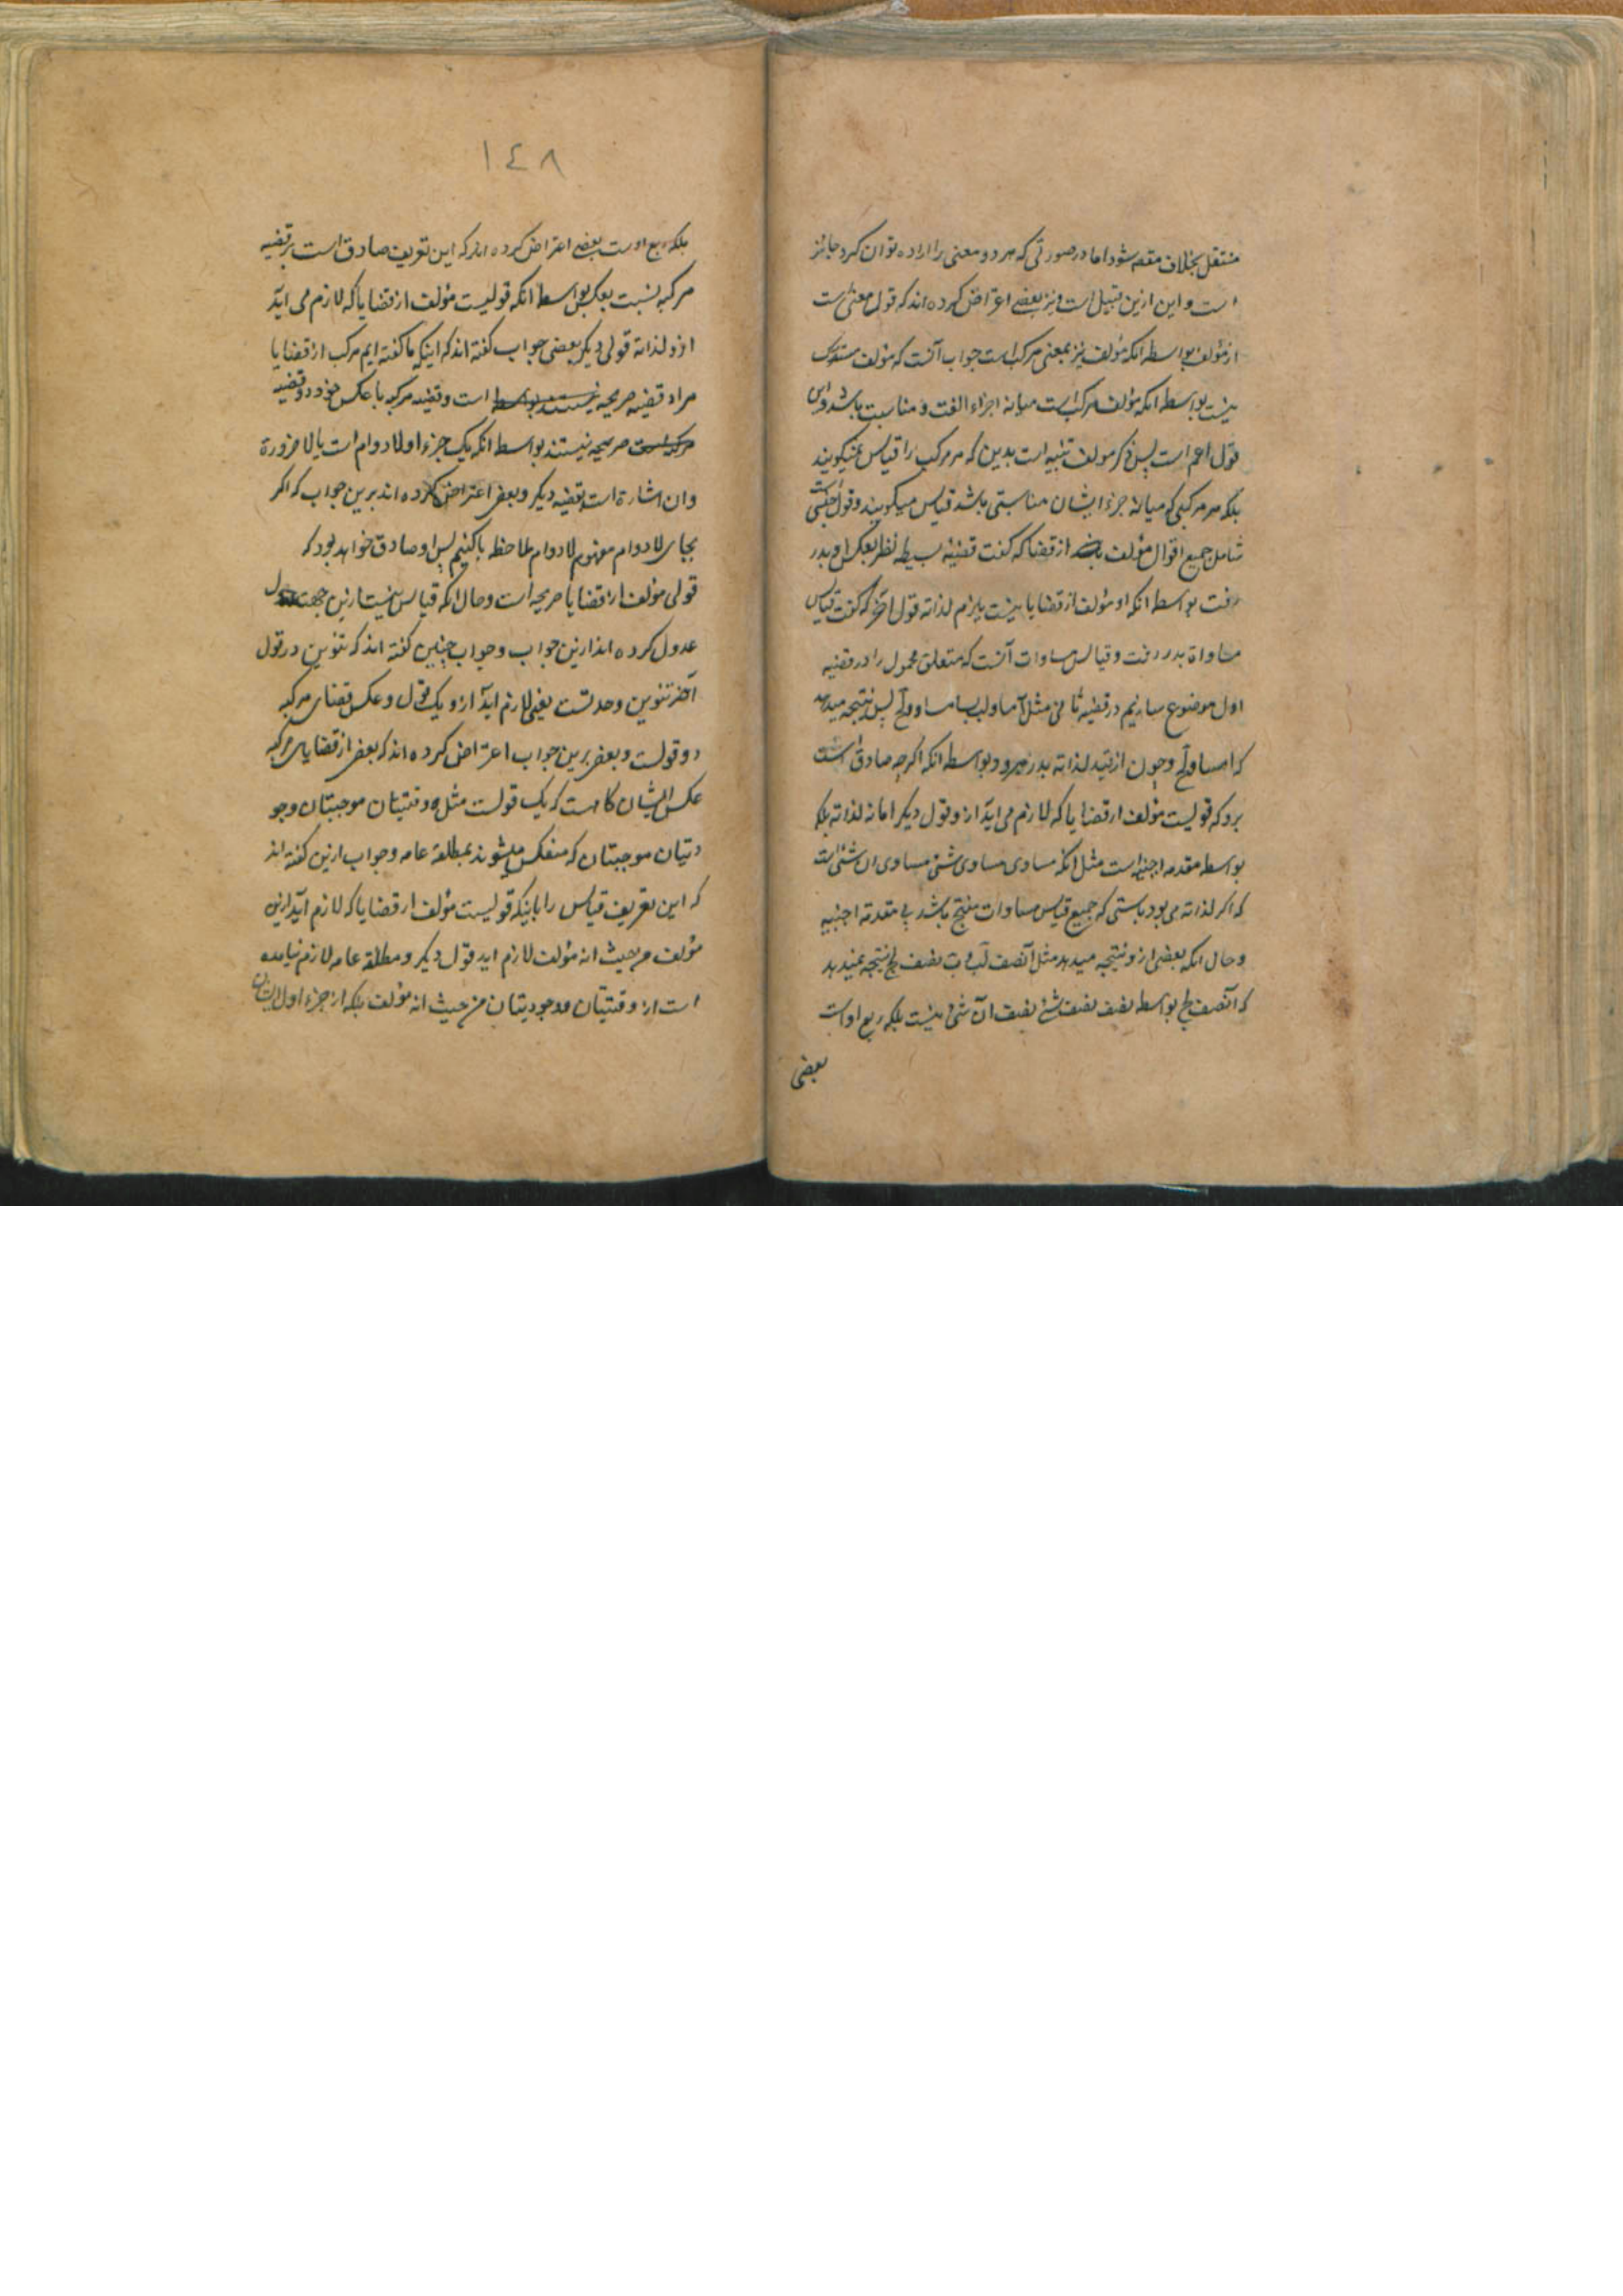 منتقل بخلاف مقصود شود اما در صورتی که هر دو معنی را اراده توان کرد جائز
است و این ازین قبیل است و نیز بعضی اعتراض کرده اند که قول مغنی است
از مؤلف بواسطه انکه مؤلف نیز بمعنی مرکب است جواب آنست که مؤلف مستدرک
نیست بواسطه انکه مؤلف مرکب است میانه اجزاء الفت و مناسبت باشد و این
قول اعم است پس ذکر مولف تنبیه است بدین که هر مرکب را قیاس نمیکویند
بلکه هر مرکبی که میانه جزء ایشان مناسبتی باشد قیاس میکویند و قول جنس است
شامل جمیع اقوال مؤلف از قضایا که کفت قضیه بسیطه نظر بعکس او بدر
رفت بواسطه انکه او مؤلف از قضایا نیست یلزم لذاته قول اخر که کفت قیاس
مساواة بدر رفت و قیاس مساوات آنست که متعلق محمول را در قضیه
اول موضوع سازیم در قضیه ثانی مثل آ مساو لب و ب مساو لج پس نتیجه میدهد
که ا مساو لج و چون از قید لذاته بدر میرود بواسطه انکه اکرچه صادق است
برو که قولیست مؤلف از قضایا که لازم می اید از و قول دیکر اما نه لذاته بلکه
بواسطه مقدمه اجنبیه است مثل انکه مساوی مساوی شئ مساوی ان شئ است
که اکر لذاته می بود بایستی که جمیع قیاس مساوات منتج باشد بی مقدمه اجنبیه
و حال انکه بعضی ازو نتیجه میدهد مثل آ نصف لب و ب نصف لج نتیجه نمیدهد
که ا نصف لج بواسطه نصف نصف شئ نصف آن شئ نیست بلکه ربع اوست
بعضی
١٤٨
بلکه ربع اوست بعضی اعتراض کرده اند که این تعریف صادق است بر قضیه
مرکبه نسبت بعکس بواسطه انکه قولیست مؤلف از قضایا که لازم می اید
ازو لذاته قولی دیکر بعضی جواب کفته اند که اینکه ما کفته ایم مرکب از قضایا
مراد قضیه صریحه است و قضیه مرکبه با عکس خود دو قضیه
صریحه نیستند بواسطه انکه یک جزء او لا دوام است یا لا ضرورة
و ان اشارة است بقضیه دیکر و بعضی اعتراض کرده اند برین جواب که اکر
بجای لا دوام مفهوم لا دوام ملاحظه بکنیم پس او صادق خواهد بود که
قولی مؤلف از قضایا صریحه است و حال انکه قیاس نیست ازین جهت
عدول کرده اند ازین جواب و جواب چنین کفته اند که تنوین در قول
آخر تنوین وحدتست یعنی لازم اید ازو یک قول و عکس قضای مرکبه
دو قولست و بعضی برین جواب اعتراض کرده اند که بعضی از قضایای مرکبه
عکس ایشان کاهست که یک قولست مثل وقتیتان موجبتان وجو
دیتان موجبتان که منعکس میشوند بمطلقه عامه و جواب ازین کفته اند
که این تعریف قیاس را باینکه قولیست مؤلف از قضایا که لازم اید ازین
مؤلف من حیث انه مؤلف لازم اید قول دیکر و مطلقه عامه لازم نیامده
است از وقتیتان و وجودیتان من حیث انه مؤلف بلکه از جزء اول ایشان